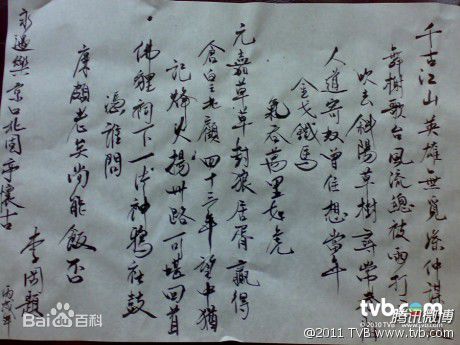 千古江山 英雄無覓 孫仲謀
舞榭歌台 風流總被 雨打
吹去 斜陽草樹 尋常
人道寄奴曾住 想當年
金戈鐵馬
氣吞萬里如虎
元嘉草草 封狼居胥 贏得
倉皇北顧 四十三年 望中猶
記烽火揚州路 可堪回首
佛狸祠下 一片神鴉社鼓
憑誰問
廉頗老矣 尚能飯否
永遇樂 京口北固亭懷古
李
tvb.com
腾讯微博
Bai百科
@2011 TVB www.tvb.com